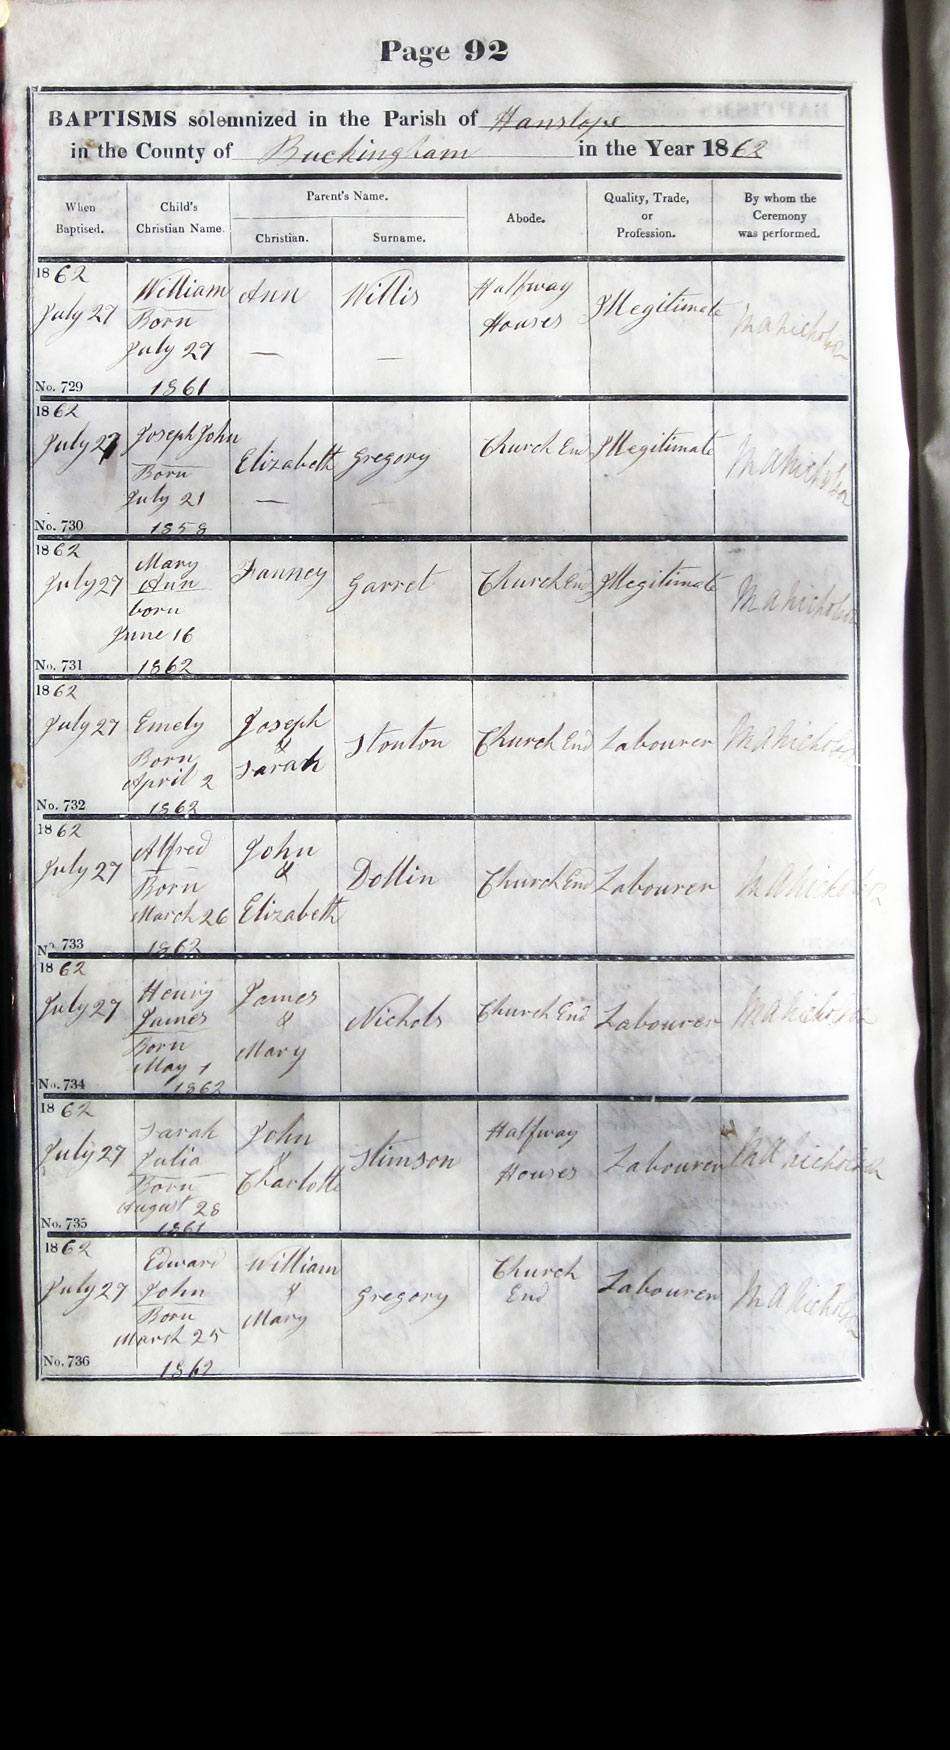 Page 92
BAPTISMS solemnized in the Parish of Hanslope
in the County of Buckingham in the Year 1862
When Baptised. Child's Christian Name. Parent's Name. Christian. Surname. Abode. Quality, Trade, or Profession. By whom the Ceremony was performed.
1862
July 27 William Ann Willis Halfway Houses Illegitimate M A Nicholson
Born
July 27
No. 729 1861
1862
July 27 Joseph John Elizabeth Gregory Church End Illegitimate M A Nicholson
Born
July 21
No. 730 1858
1862
July 27 Mary Ann Fanney Garret Church End Illegitimate M A Nicholson
born
June 16
No. 731 1862
1862
July 27 Emely Joseph & Sarah Stonton Church End Labourer M A Nicholson
Born
April 2
No. 732 1862
1862
July 27 Alfred John & Elizabeth Dollin Church End Labourer M A Nicholson
Born
March 26
No. 733 1862
1862
July 27 Henry James James & Mary Nichols Church End Labourer M A Nicholson
Born
May 1
No. 734 1862
1862
July 27 Sarah Julia John & Charlotte Stimson Halfway Houses Labourer M A Nicholson
Born
August 28
No. 735 1861
1862
July 27 Edward John William & Mary Gregory Church End Labourer M A Nicholson
Born
March 25
No. 736 1862